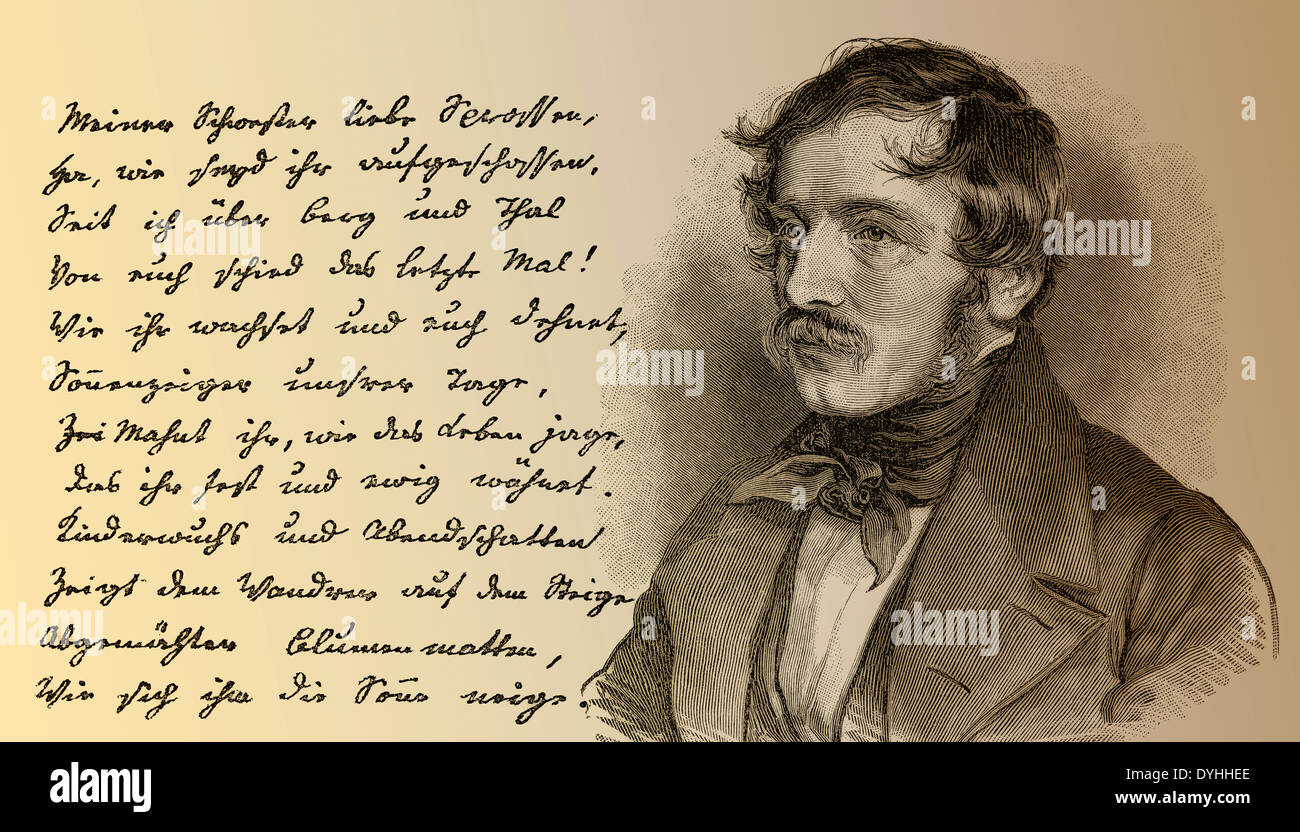 Meiner Schwester liebe Sprossen,
Ha, wie seyd ihr aufgeschossen,
Seit ich über Berg und Thal
Von euch schied das letzte Mal!
Wie ihr wachset und euch dehnet,
Soñenzeiger unsrer Tage,
Mahnt ihr, wie das Leben jage,
Das ihr fest und ewig wähnet.
Kinderwuchs und Abendschatten
Zeigt dem Wandrer auf dem Steige
Abgemähter Blumenmatten,
Wie sich ihm die Soñe neige.
alamy
a
alamy stock photo
Image ID: DYHHEE
www.alamy.com